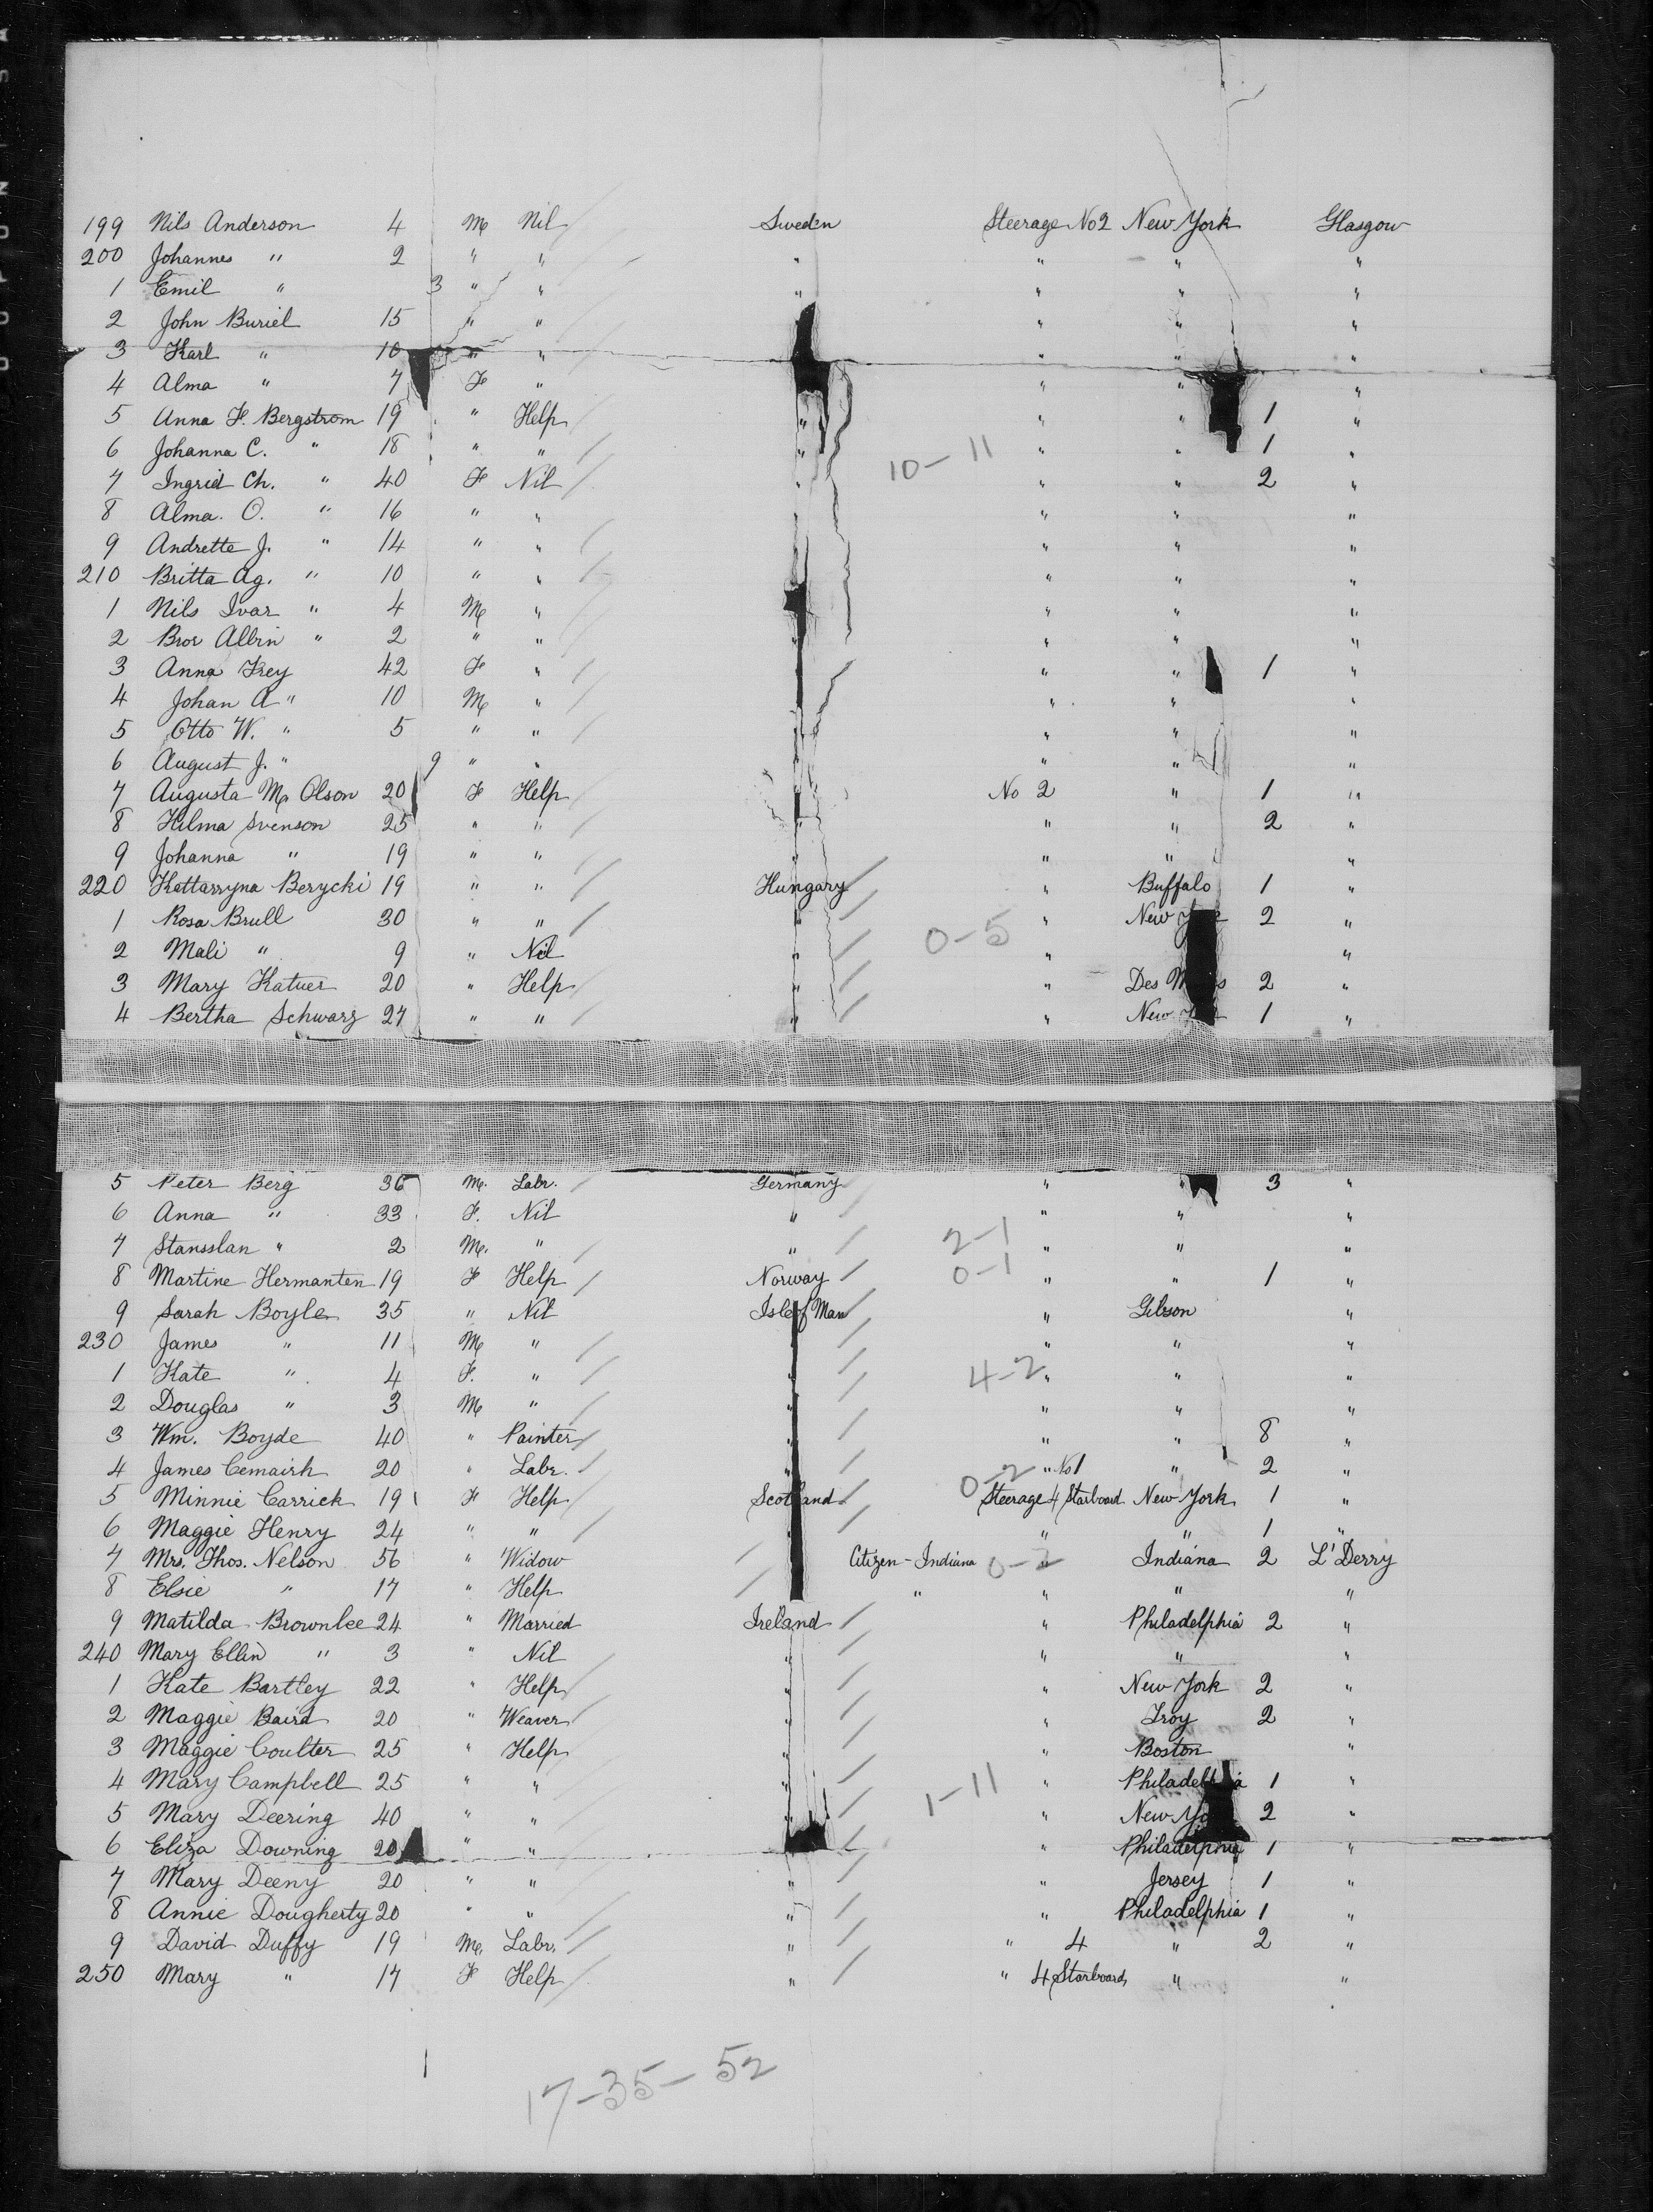 199 Nils Anderson 4 M Nil Sweden Steerage No 2 New York Glasgow
200 Johannes " 2 " " " " " "
1 Emil " 3 " " " " " "
2 John Buriel 15 " " " " "
3 Karl " 10 " " " " "
4 Alma " 7 F " " " "
5 Anna F. Bergstrom 19 " Help " " " 1 "
6 Johanna C. " 18 " " " " " 1 "
10-11
7 Ingrid Ch. " 40 F Nil " " " 2 "
8 Alma. O. " 16 " " " " " "
9 Andrette J. " 14 " " " " "
210 Britta Ag. " 10 " " " " "
1 Nils Ivar " 4 M " " " "
2 Bror Albin " 2 " " " " " "
3 Anna Frey 42 F " " " 1 "
4 Johan A " 10 M " " " "
5 Otto W. " 5 " " " " " "
6 August J. " 9 " " " " " "
7 Augusta M. Olson 20 F Help No 2 " 1 "
8 Hilma Svenson 25 " " " " " 2 "
9 Johanna " 19 " " " " " "
220 Kattarryna Berycki 19 " " Hungary " Buffalo 1 "
1 Rosa Brull 30 " " " " New 2 "
0-5
2 Mali " 9 " Nil " " "
3 Mary Katuer 20 " Help " " Des 2 "
4 Bertha Schwarz 27 " " " " New 1 "
5 Peter Berg 36 M. Labr. Germany " " 3 "
6 Anna " 33 F. Nil " " " "
2-1
7 Stansslan " 2 M. " " " " "
0-1
8 Martine Hermanten 19 F Help Norway " " 1 "
9 Sarah Boyle 35 " Nil Isle of Man " Gibson "
230 James " 11 M " " " "
1 Kate " 4 F. " " " " "
4-2
2 Douglas " 3 M " " " " "
3 Wm. Boyde 40 " Painter " " " 8 "
4 James Cemairh 20 " Labr. " " No 1 " 2 "
0-2
5 Minnie Carrick 19 F Help Scotland Steerage 4 Starboard New York 1 "
6 Maggie Henry 24 " " " " " 1 "
7 Mrs. Thos. Nelson 56 " Widow Citizen - Indiana 0-2 Indiana 2 L'Derry
8 Elsie " 17 " Help " " " "
9 Matilda Brownlee 24 " Married Ireland " Philadelphia 2 "
240 Mary Ellen " 3 " Nil " " " "
1 Kate Bartley 22 " Help " " New York 2 "
2 Maggie Baird 20 " Weaver " " Troy 2 "
3 Maggie Coulter 25 " Help " " Boston "
4 Mary Campbell 25 " " " " Philadelphia 1 "
1-11
5 Mary Deering 40 " " " " New 2 "
6 Eliza Downing 20 " " " Philadelphia 1 "
7 Mary Deeny 20 " " " " Jersey 1 "
8 Annie Dougherty 20 " " " " Philadelphia 1 "
9 David Duffy 19 M. Labr. " " 4 " 2 "
250 Mary " 17 F Help " " 4 Starboard " "
17-35-52